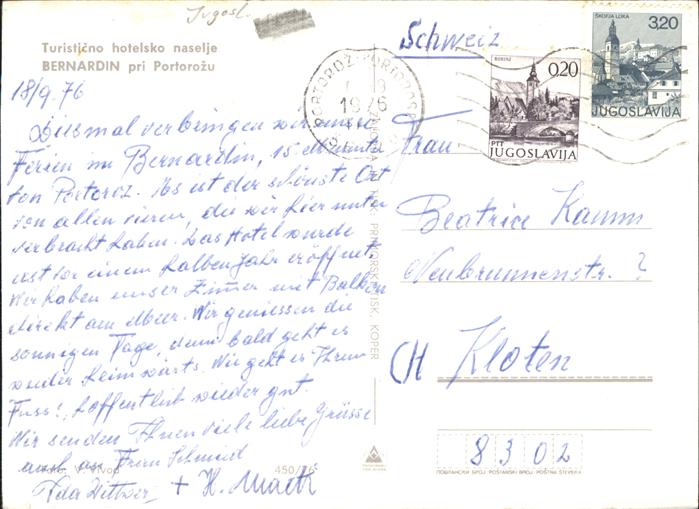 Jugosl.
Turistično hotelsko naselje
BERNARDIN pri Portorožu
18/9.76
Diesmal verbringen wir unsere
Ferien im Bernardin, 15 Minuten
von Portoroz. Es ist der schönste Ort
von allen vieren, die wir hier unter
verbracht haben. Das Hotel wurde
erst vor einem halben Jahr eröffnet
Wir haben unser Zimmer mit Balkon
direkt am Meer. Wir geniessen die
sonnigen Tage, denn bald geht es
wieder heimwärts. Wie geht es Ihrem
Fuss?, hoffentlich wieder gut.
Wir senden Ihnen viele liebe Grüsse
auch an Frau Schmid
+ H.
450/76
TISK: PRIMORSKI TISK, KOPER
PORTOROŽ-PORTOROSE
1976
Schweiz
BOHINJ
0.20
PTT
JUGOSLAVIJA
ŠKOFJA LOKA
3.20
JUGOSLAVIJA
Frau
Beatrice Kamm
Neubrunnenstr. ?
CH Kloten
8302